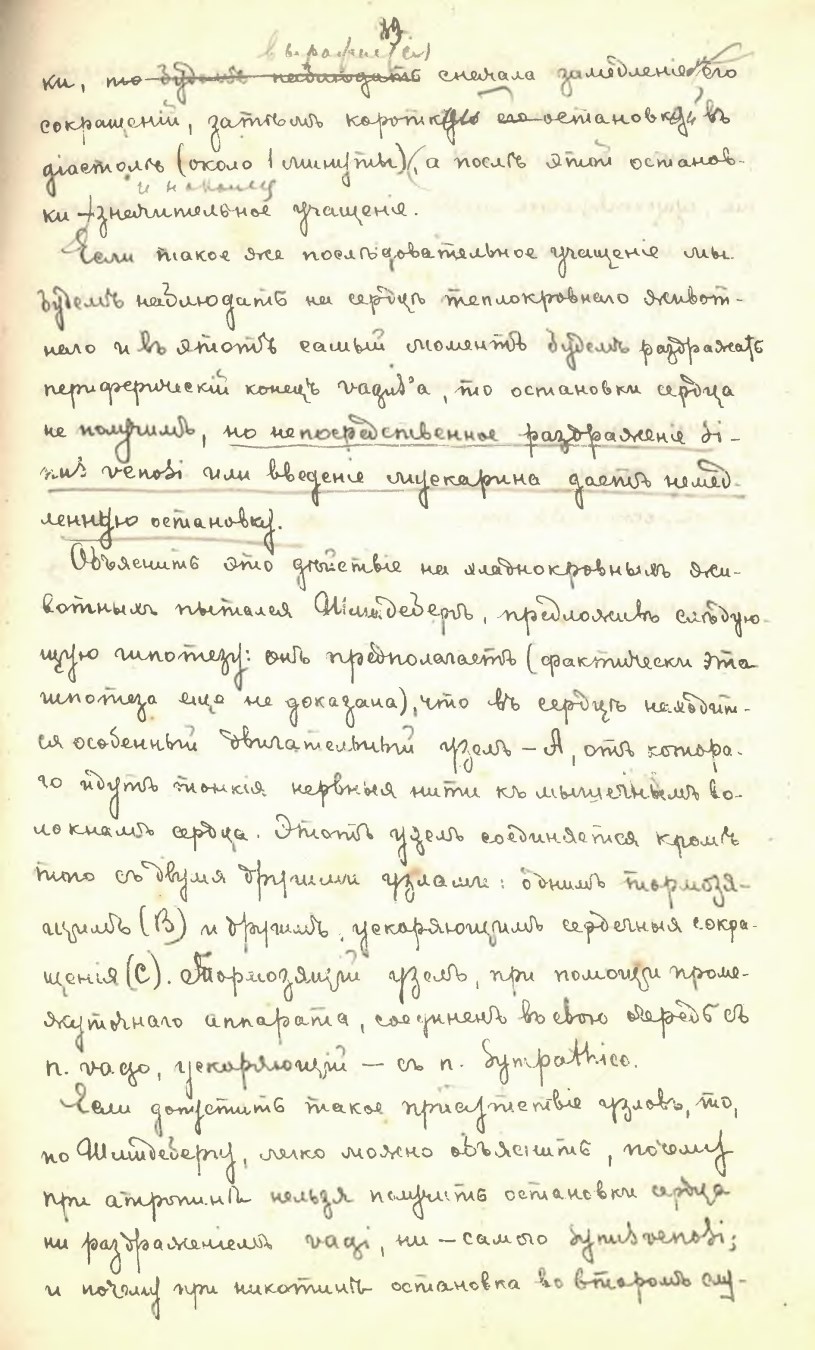 ки, то будемъ наблюдать сначала замедленіе его
сокращеній, затѣмъ коротк его остановк въ
діастолѣ (около 1 минуты), а послѣ этой останов-
и наконец
ки – значительное учащеніе.
Если такое же послѣдовательное учащеніе мы
будемъ наблюдать на сердцѣ теплокровнаго живот-
наго и въ этотъ самый моментъ будемъ раздражать
периферическій конецъ vagus'a, то остановки сердца
не получимъ, но непосредственное раздраженіе Si-
nus venosi или введеніе мускарина даетъ немед-
ленную остановку.
Объяснить это дѣйствіе на хладнокровныхъ жи-
вотныхъ пытался Шмидебергъ, предложивъ слѣдую-
щую гипотезу: онъ предполагаетъ (фактически эта
гипотеза еще не доказана), что въ сердцѣ находит-
ся особенный двигательный узелъ – А, отъ котора-
го идутъ тонкія нервныя нити къ мышечнымъ во-
локнамъ сердца. Этотъ узелъ соединяется кромѣ
того съ двумя другими узлами: однимъ тормозя-
щимъ (В) и другимъ, ускоряющимъ сердечныя сокра-
щенія (С). Тормозящій узелъ, при помощи проме-
жуточнаго аппарата, соединенъ въ свою очередь съ
n. vago, ускоряющій – съ n. Sympathico.
Если допустить такое присутствіе узловъ, то,
по Шмидебергу, легко можно объяснить, почему
при атропинѣ нельзя получить остановки сердца
ни раздраженіемъ vagi, ни – самого Synus venosi;
и почему при никотинѣ остановка во второмъ слу-